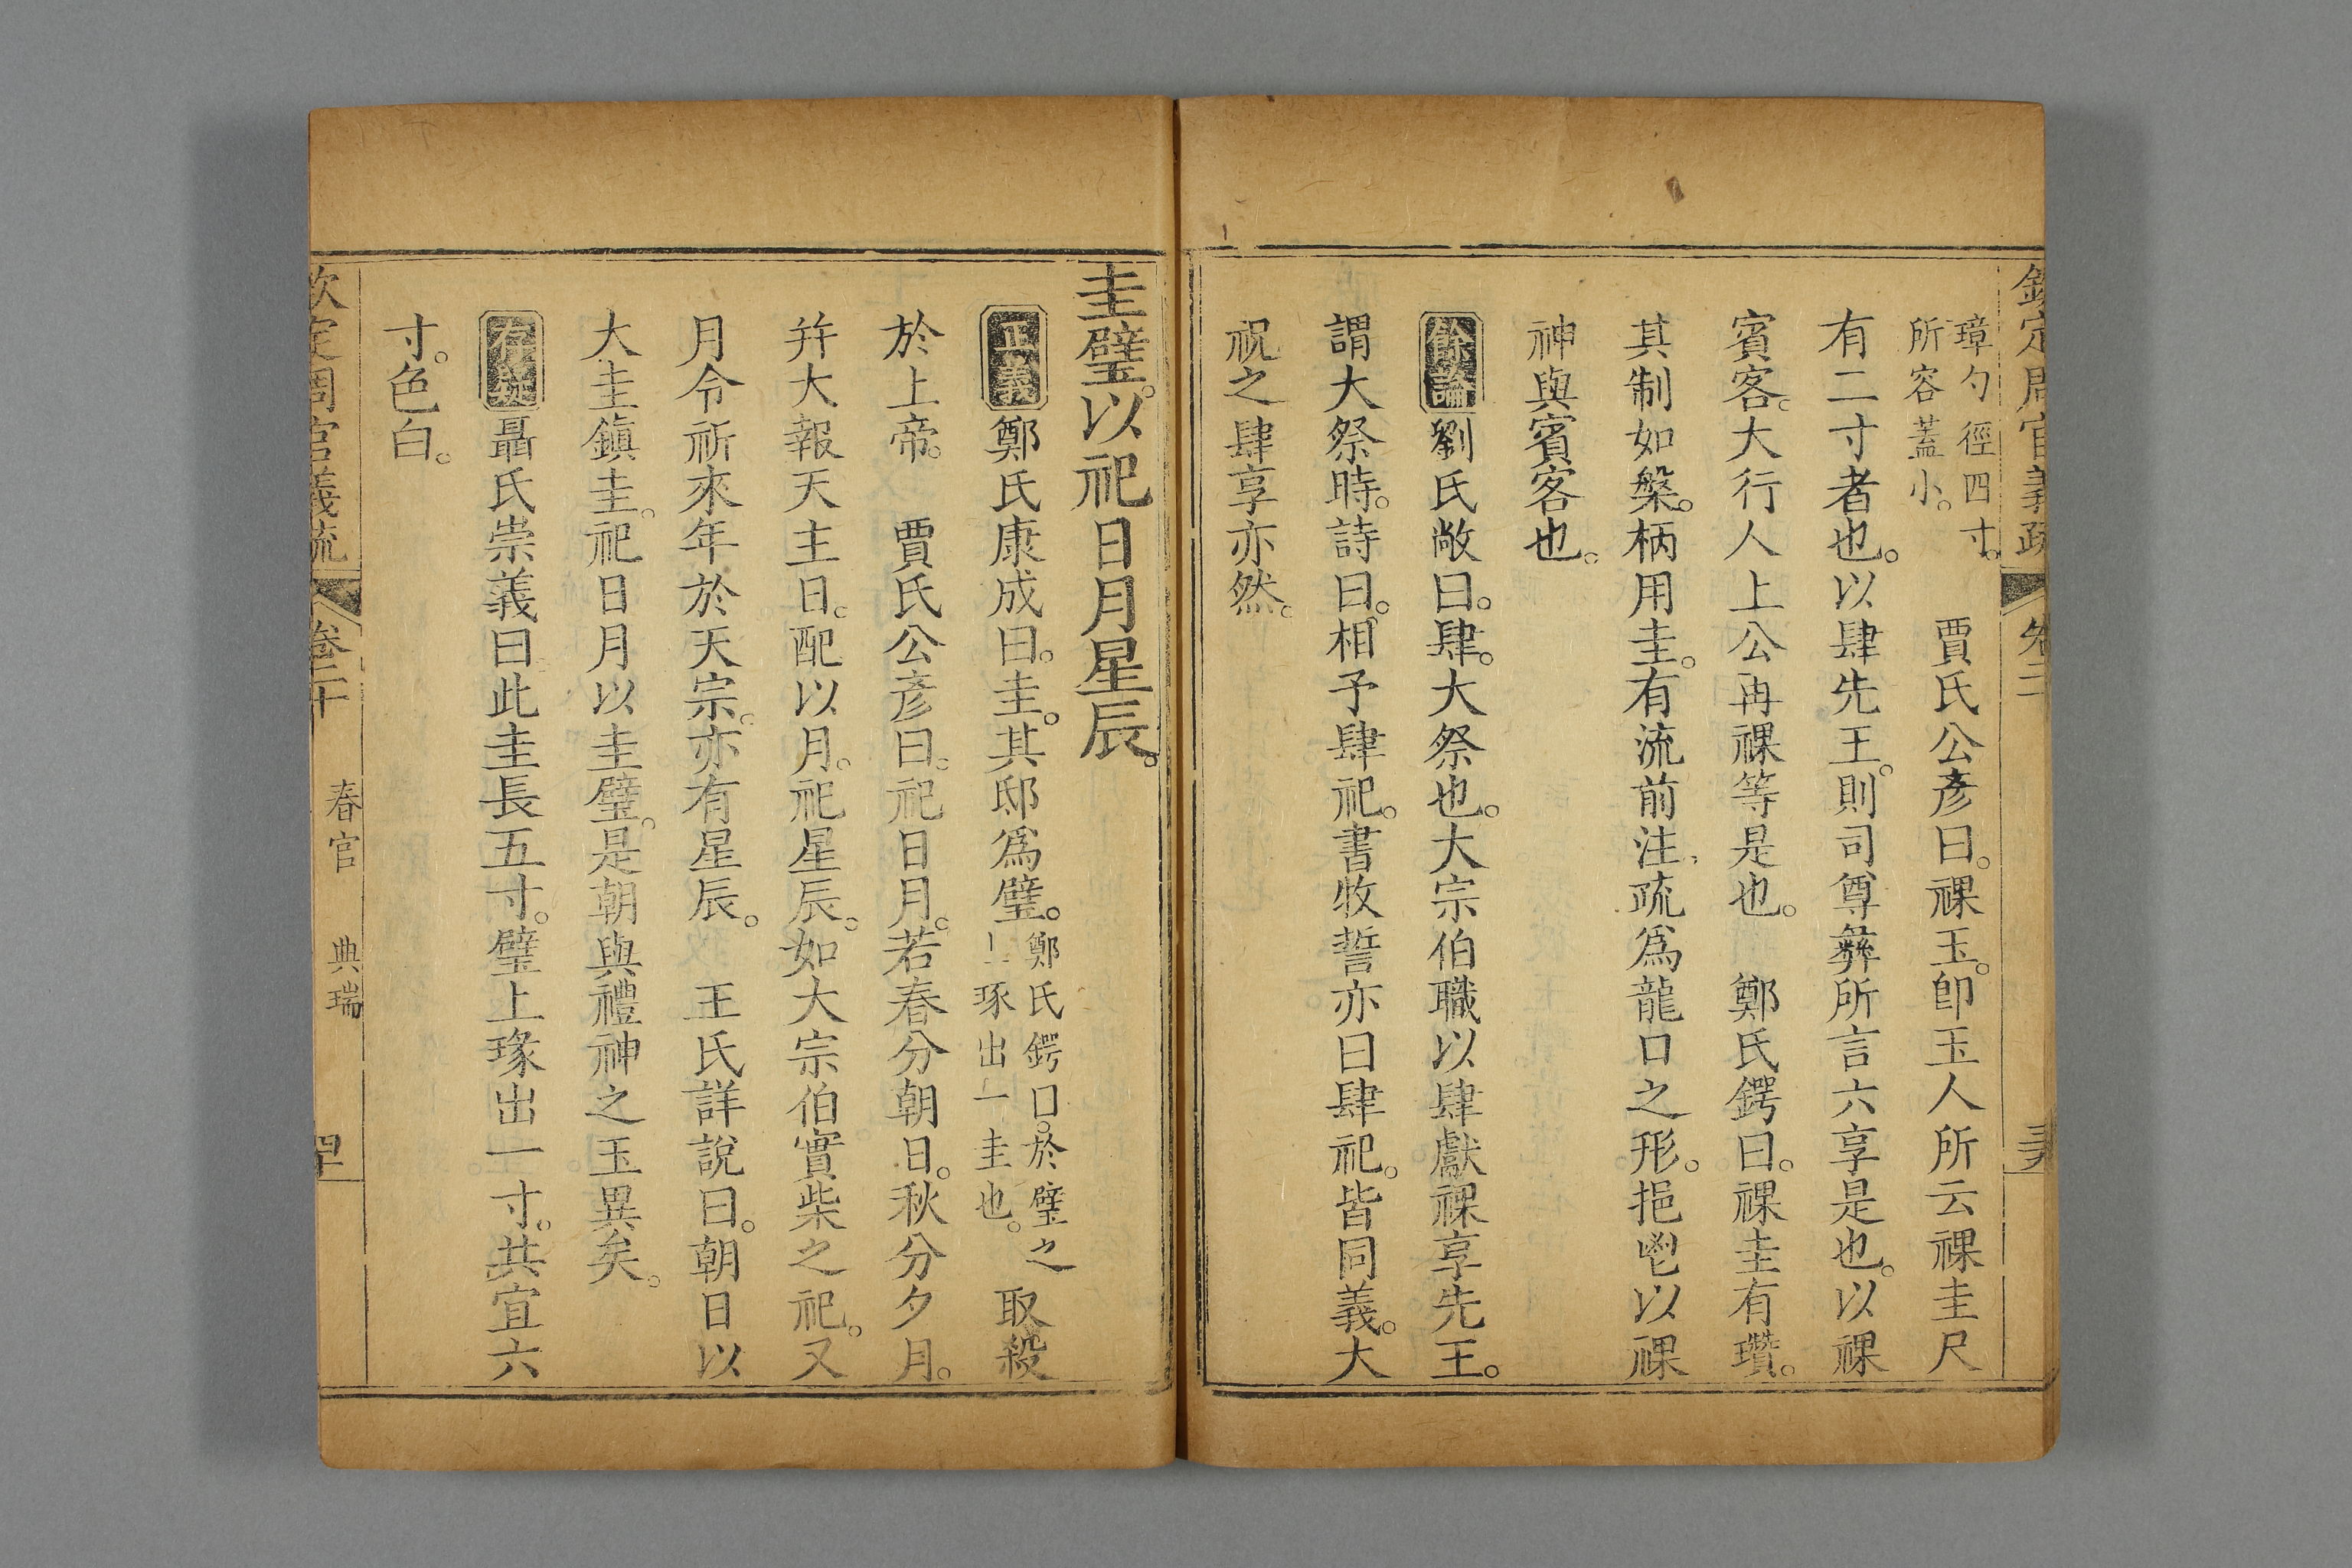 欽定周官義疏 卷二
璋勺徑四寸。
所容蓋小。
賈氏公彥曰。祼玉。卽玉人所云祼圭尺
有二寸者也。以肆先王。則司尊彝所言六享是也。以祼
賓客。大行人上公再祼等是也。　鄭氏鍔曰。祼圭有瓚。
其制如槃。柄用圭。有流前注。疏爲龍口之形。挹鬯以祼
神與賓客也。
餘論劉氏敞曰。肆。大祭也。大宗伯職以肆獻祼享先王。
謂大祭時。詩曰。相予肆祀。書牧誓亦曰肆祀。皆同義。大
祝之肆享亦然。
圭璧。以祀日月星辰。
正義鄭氏康成曰。圭。其邸爲璧。
鄭氏鍔曰。於璧之
上琢出一圭也。
取殺
於上帝。　賈氏公彥曰。祀日月。若春分朝日。秋分夕月。
幷大報天主日。配以月。祀星辰。如大宗伯實柴之祀。又
月令祈來年於天宗。亦有星辰。　王氏詳說曰。朝日以
大圭鎮圭。祀日月以圭璧。是朝與禮神之玉異矣。
存疑聶氏崇義曰此圭長五寸。璧上琢出一寸。共宜六
寸。色白。
欽定周官義疏 卷二十 春官 典瑞